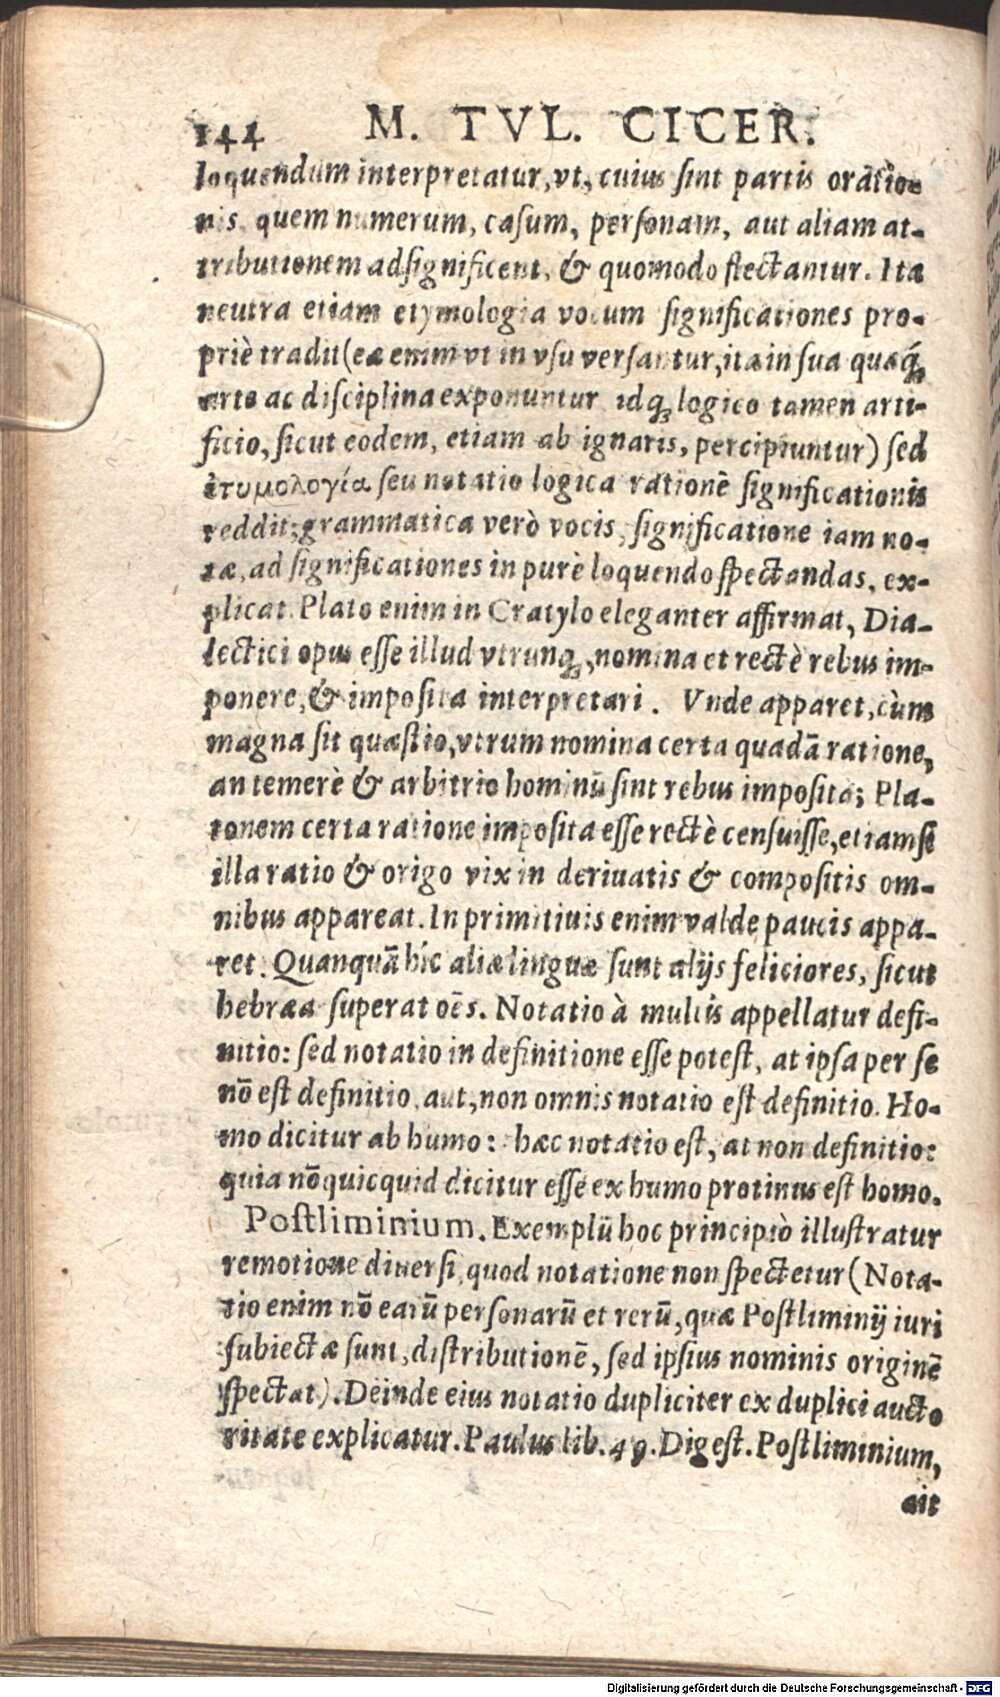 144 M. TVL. CICER.
loquendum interpretatur, vt, cuius sint partis oratio-
nis, quem numerum, casum, personam, aut aliam at-
tributionem adsignificent, & quomodo flectantur. Ita
neutra etiam etymologia vocum significationes pro-
priè tradit (eæ enim vt in vsu versantur, ita in sua quaq́;
arte ac disciplina exponuntur idq; logico tamen arti-
ficio, sicut eodem, etiam ab ignaris, percipiuntur) sed
ἐτυμολογία seu notatio logica rationē significationis
reddit; grammatica verò vocis, significatione iam no-
tæ, ad significationes in purè loquendo spectandas, ex-
plicat. Plato enim in Cratylo eleganter affirmat, Dia-
lectici opus esse illud vtrunq;, nomina et rectè rebus im-
ponere, & imposita interpretari. Vnde apparet, cùm
magna sit quæstio, vtrum nomina certa quadā ratione,
an temerè & arbitrio hominū sint rebus imposita; Pla-
tonem certa ratione imposita esse rectè censuisse, etiamsi
illa ratio & origo vix in deriuatis & compositis om-
nibus appareat. In primitiuis enim valde paucis appa-
ret. Quanquā hîc aliæ linguæ sunt alijs feliciores, sicut
hebræa superat oēs. Notatio à multis appellatur defi-
nitio: sed notatio in definitione esse potest, at ipsa per se
nō est definitio, aut, non omnis notatio est definitio. Ho-
mo dicitur ab humo: hæc notatio est, at non definitio:
quia nō quicquid dicitur esse ex humo protinus est homo.
Postliminium. Exemplū hoc principiò illustratur
remotione diuersi, quod notatione non spectetur (Nota-
tio enim nō earū personarū et rerū, quæ Postliminij iuri
subiectæ sunt, distributionē, sed ipsius nominis originē
spectat). Deinde eius notatio dupliciter ex duplici aucto
ritate explicatur. Paulus lib. 49. Digest. Postliminium,
ait
Digitalisierung gefördert durch die Deutsche Forschungsgemeinschaft - DFG